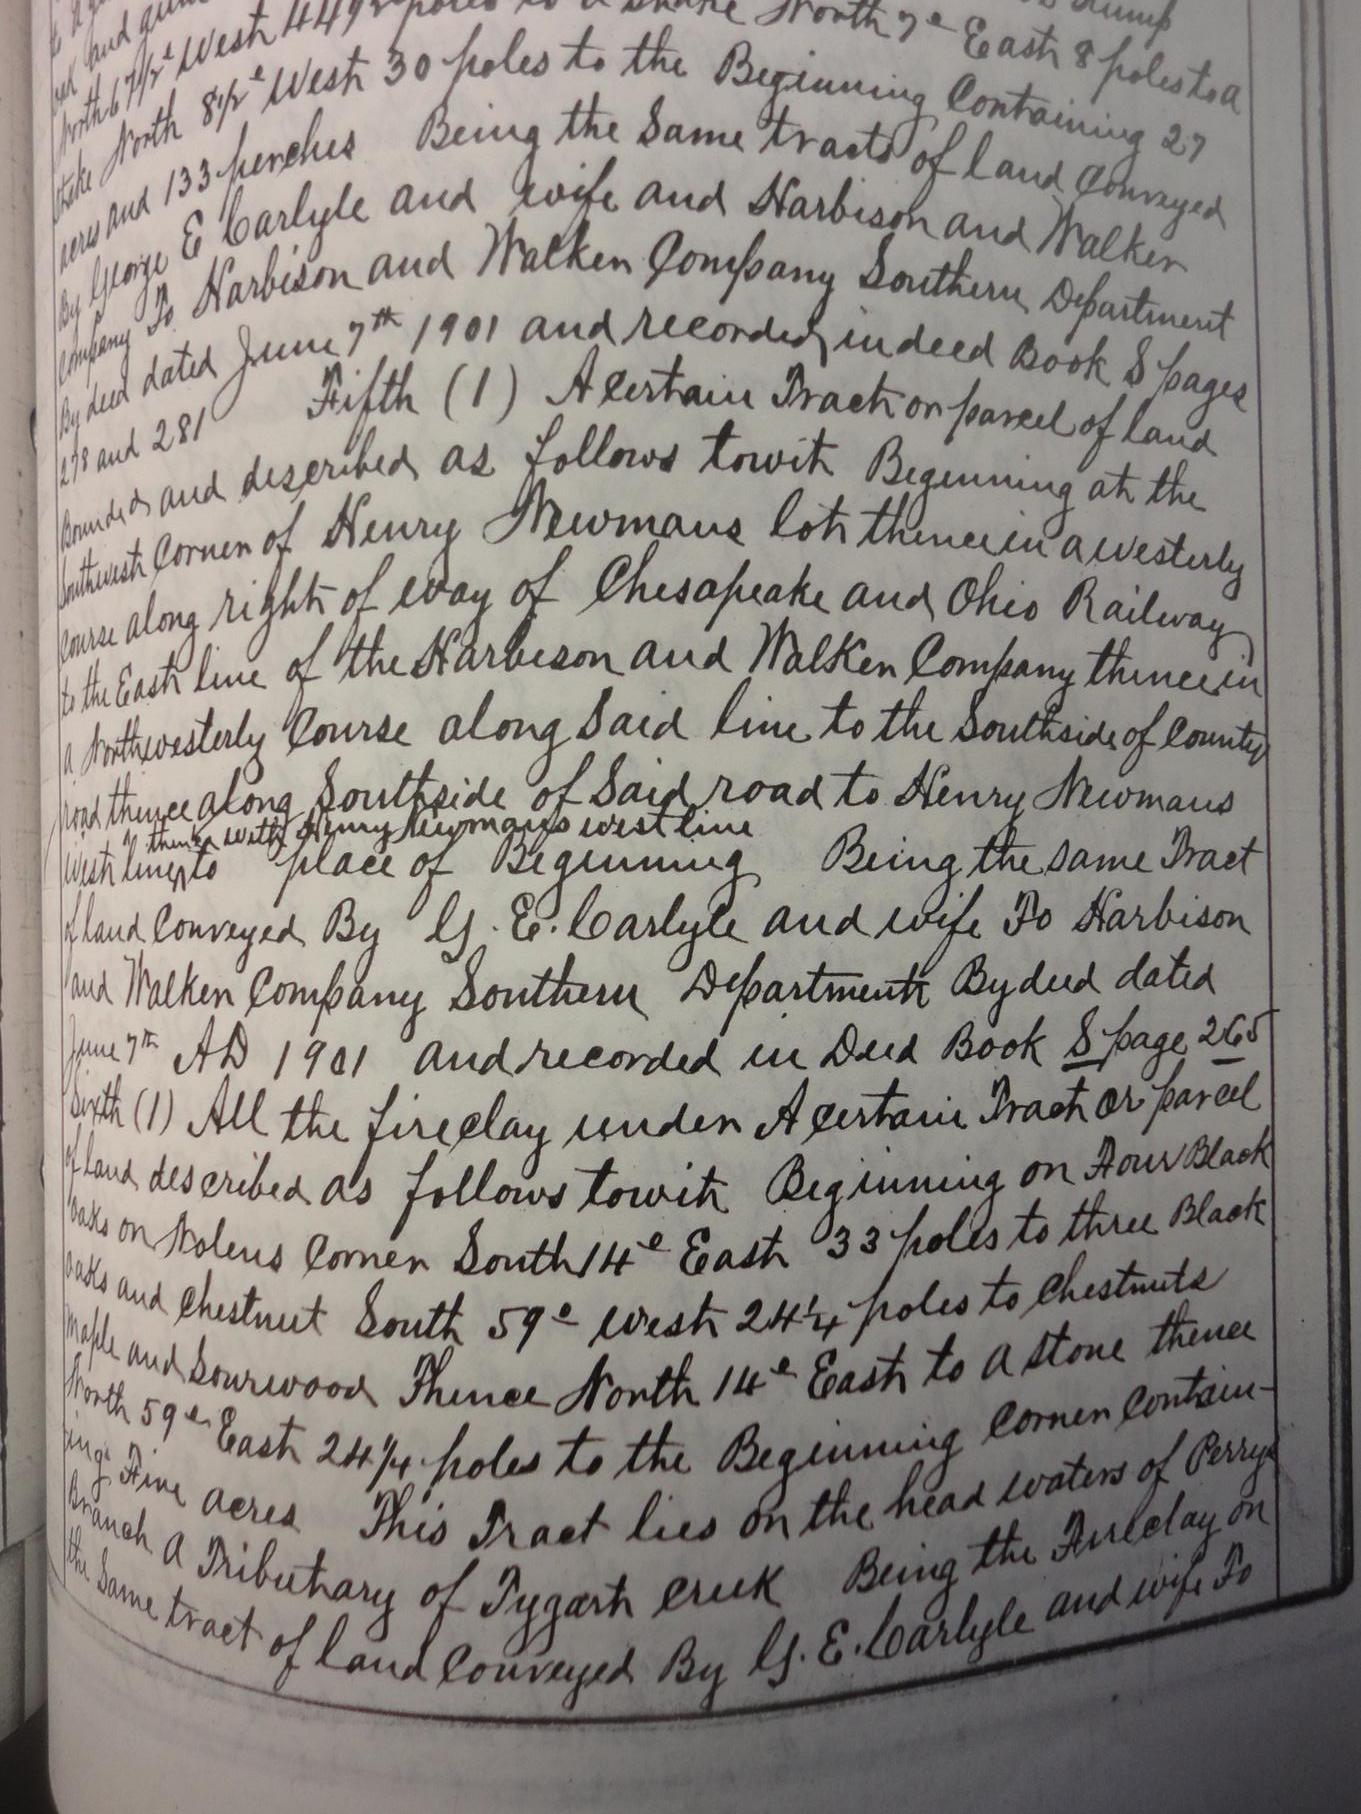 North 67 1/2° West 449 poles to a stake North 7° East 8 poles to a
stake North 81/2° West 30 poles to the Beginning Containing 27
acres and 133 perches Being the Same tracts of land Conveyed
By George E Carlyle and wife and Harbison and Walker
Company To Harbison and Walker Company Southern Department
By deed dated June 7th 1901 and recorded in deed Book 8 pages
278 and 281 Fifth (1) A Certain Tract or parcel of land
Bounded and described as follows towit Beginning at the
Southwest Corner of Henry Newmans lot thence in a westerly
Course along right of way of Chesapeake and Ohio Railway
to the East line of the Harbison and Walker Company thence in
a Northwesterly Course along Said line to the Southside of County
road thence along Southside of Said road to Henry Newmans
thence with Henry Newmans west line
West line to place of Beginning Being the same Tract
of land Conveyed By G. E. Carlyle and wife To Harbison
and Walker Company Southern Department By deed dated
June 7th AD 1901 and recorded in Deed Book 8 page 265
Sixth (1) All the fireclay under A Certain Tract or parcel
of land described as follows towit Beginning on Four Black
oaks on Nolens Corner South 14° East 33 poles to three Black
oaks and Chestnut South 59° West 24 1/4 poles to Chestnuts
Maple and Sourwood Thence North 14° East to a stone thence
North 59° East 24 1/4 poles to the Beginning Corner Contain-
ing Five acres This Tract lies on the head waters of Perrys
Branch a Tributary of Tygart Creek Being the Fireclay on
the Same tract of land Conveyed By G. E. Carlyle and wife To